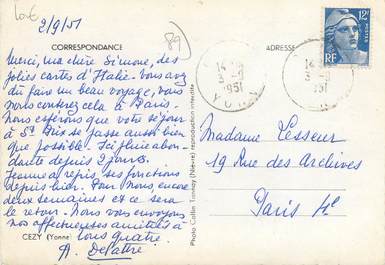 2/9/51
CORRESPONDANCE
Merci, ma chère Simone, des
jolies cartes d'Italie. Vous avez
dû faire un beau voyage, vous
nous conterez cela à Paris.
Nous espérons que votre séjour
à St Brix se passe aussi bien
que possible. Ici pluie abon-
dante depuis 2 jours.
Jeanne a repris ses fonctions
depuis hier. Pour nous, encore
deux semaines et ce sera
le retour. Nous vous envoyons
nos affectueuses amitiés à
tous quatre.
A. Delattre
CEZY (Yonne)
Photo Collin Tannay (Nièvre) reproduction interdite
ADRESSE
12F
POSTES
RF
3-9
1951
Madame Lesseur
19 Rue des Archives
Paris 4e